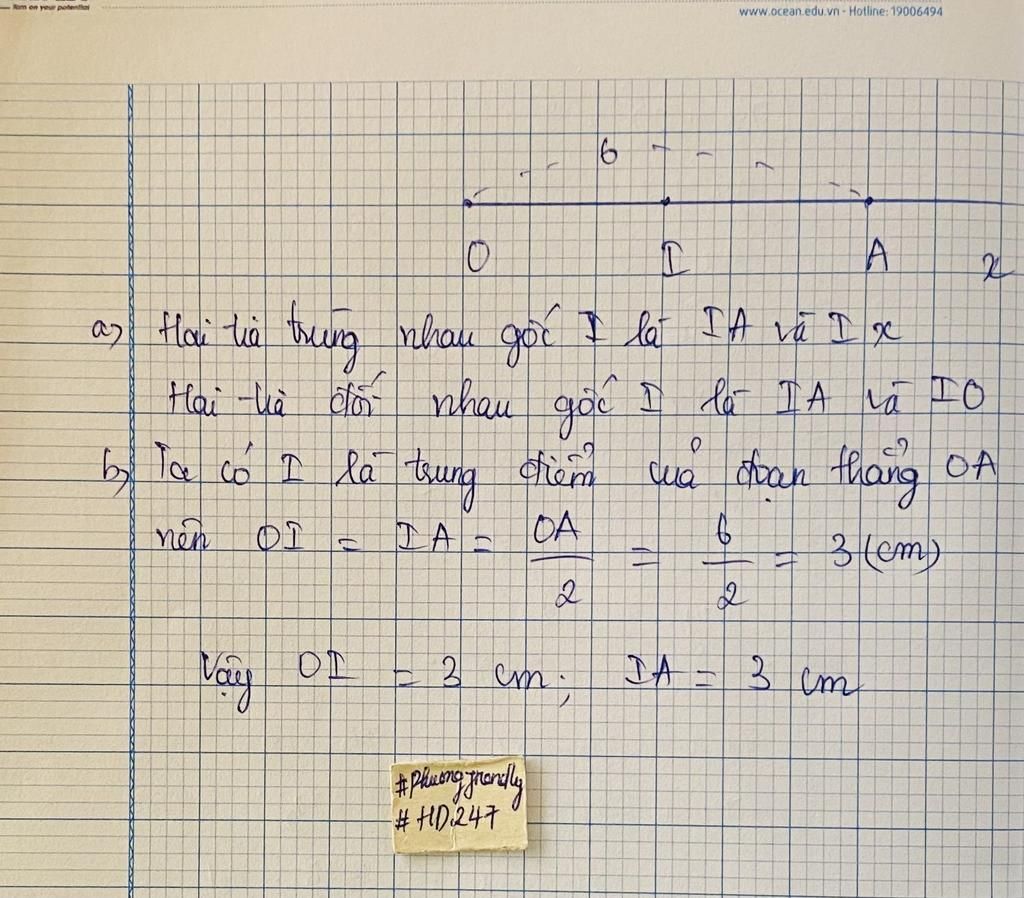 Turn on your potential
www.ocean.edu.vn - Hotline: 19006494
6
O I A x
a) Hai tia trùng nhau gốc I là IA và Ix
Hai tia đối nhau gốc I là IA và IO
b) Ta có I là trung điểm của đoạn thẳng OA
nên OI = IA = OA/2 = 6/2 = 3 (cm)
Vậy OI = 3 cm; IA = 3 cm
#Phuongfriendly
# HD247